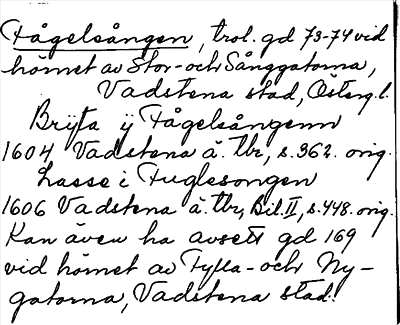 Fågelsången, trol. gd 73-74 vid
hörnet av Stor- och Sånggatorna,
Vadstena stad, Österg. l.
Brijta ij Fågelsångenn
1604 Vadstena ä. tbr, s. 362. orig.
Lasse i Fuglesongen
1606 Vadstena ä. tbr, Bil. II, s. 448. orig.
Kan även ha avsett gd 169
vid hörnet av Tylla- och Ny-
gatorna, Vadstena stad.